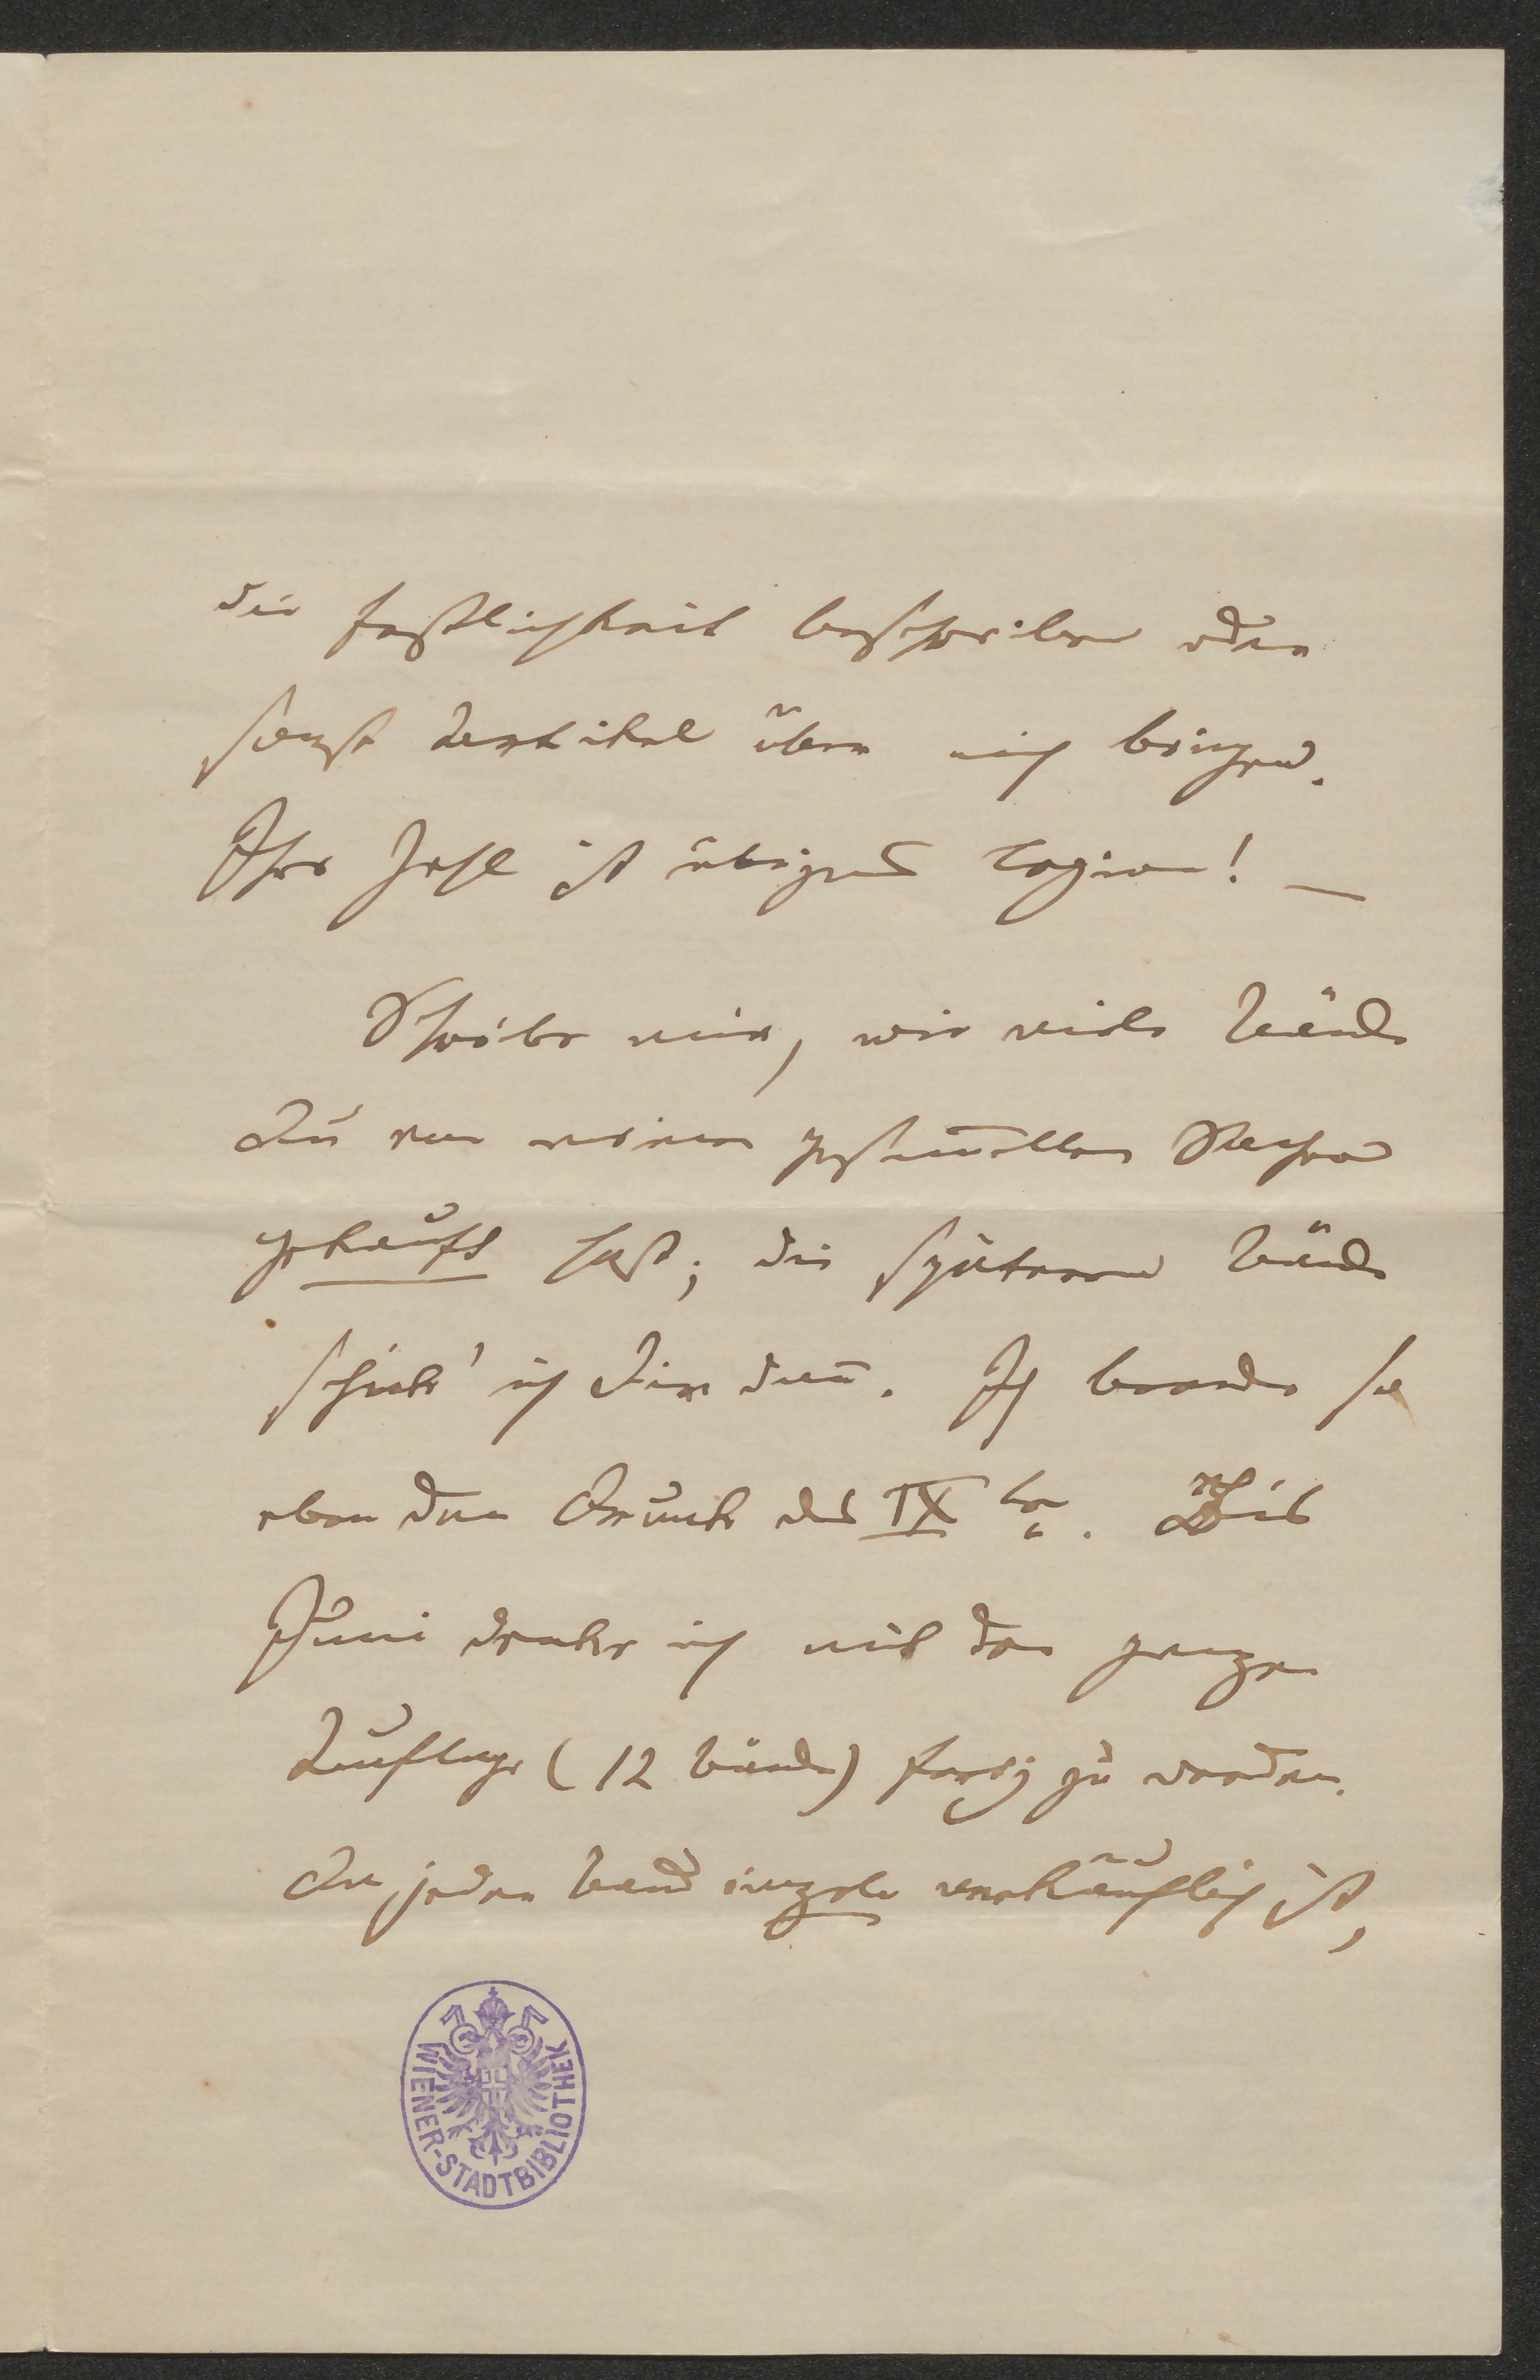 die Festlichkeit beschreiben oder
sonst Artikel über mich bringen.
Ihre Zahl ist übrigens Legion! —
Schreibe mir, wie viele Bände
Du von meinen gesammelten Sachen
gekauft hast; die späteren Bände
schick' ich Dir dann. Ich beende so
eben den Druck des IX
Juni denke ich mit der ganzen
Auflage (12 Bände) fertig zu werden.
Da jeder Band einzeln verkäuflich ist,
WIENER-STADTBIBLIOTHEK